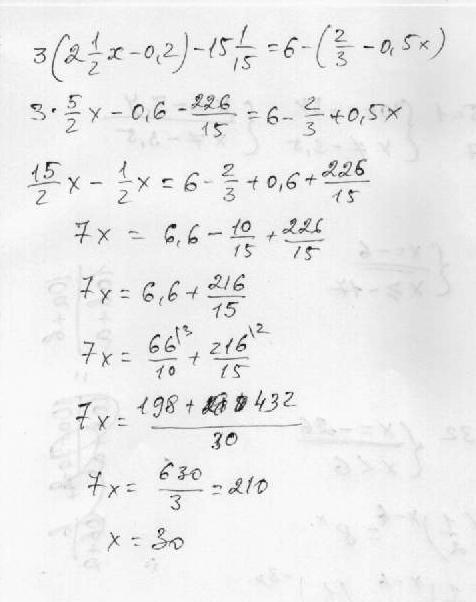 3(2 1/2 x - 0,2) - 15 1/15 = 6 - (2/3 - 0,5x)
3 · 5/2 x - 0,6 - 226/15 = 6 - 2/3 + 0,5x
15/2 x - 1/2 x = 6 - 2/3 + 0,6 + 226/15
7x = 6,6 - 10/15 + 226/15
7x = 6,6 + 216/15
7x = 66\3/10 + 216\2/15
7x = 198 + 432/30
7x = 630/3 = 210
x = 30